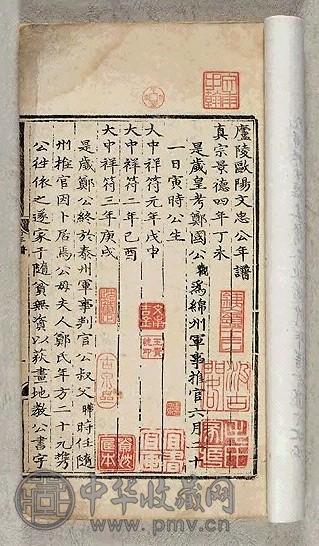 廬陵歐陽文忠公年譜
真宗景德四年丁未
是歲皇考鄭國公觀爲綿州軍事推官六月二十
一日寅時公生
大中祥符元年戊申
大中祥符二年己酉
大中祥符三年庚戌
是歲鄭公終於泰州軍事判官公叔父曄時任隨
州推官因卜居焉公母夫人鄭氏年方二十九携
公往依之遂家于隨貧無資以荻畫地教公書字
中华收藏网
www.pmv.cn